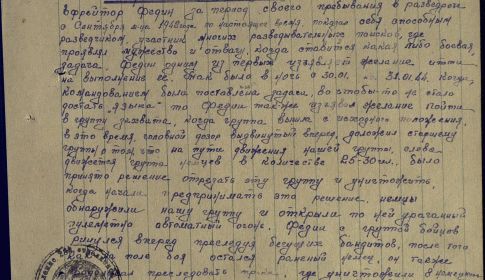 ефрейтор Федин за период своего пребывания в разведроте
с Сентября м-ца 1942 года по настоящее время, показал себя способным
разведчиком участник многих разведывательных поисков, где
проявлял мужество и отвагу, когда ставится какая либо боевая
задача. Федин одним из первых изъявляет желание итти
на выполнение ее. Так было в ночь с 30.01. на 31.01.44. Когда
командованием была поставлена задача, во что-бы то не стало
достать „языка" то Федин также изъявил желание пойти
в группу захвата, когда группа вышла с исходного положения,
в это время, головной дозор выдвинутый вперед, доложил старшему
группы о том, что на пути движения нашей группы, слева
движется группа немцев в количестве 25-30 чел. было
принято решение отрезать эту группу и уничтожить,
когда начали предпринимать это решение, немцы
обнаружили нашу группу и открыли по ней ураганный
пулеметно автоматный огонь. Федин с группой бойцов
ринулся вперед преследуя бегущих бандитов, после того
на поле боя остался раненый немец, он также
преследовать где уничтожили